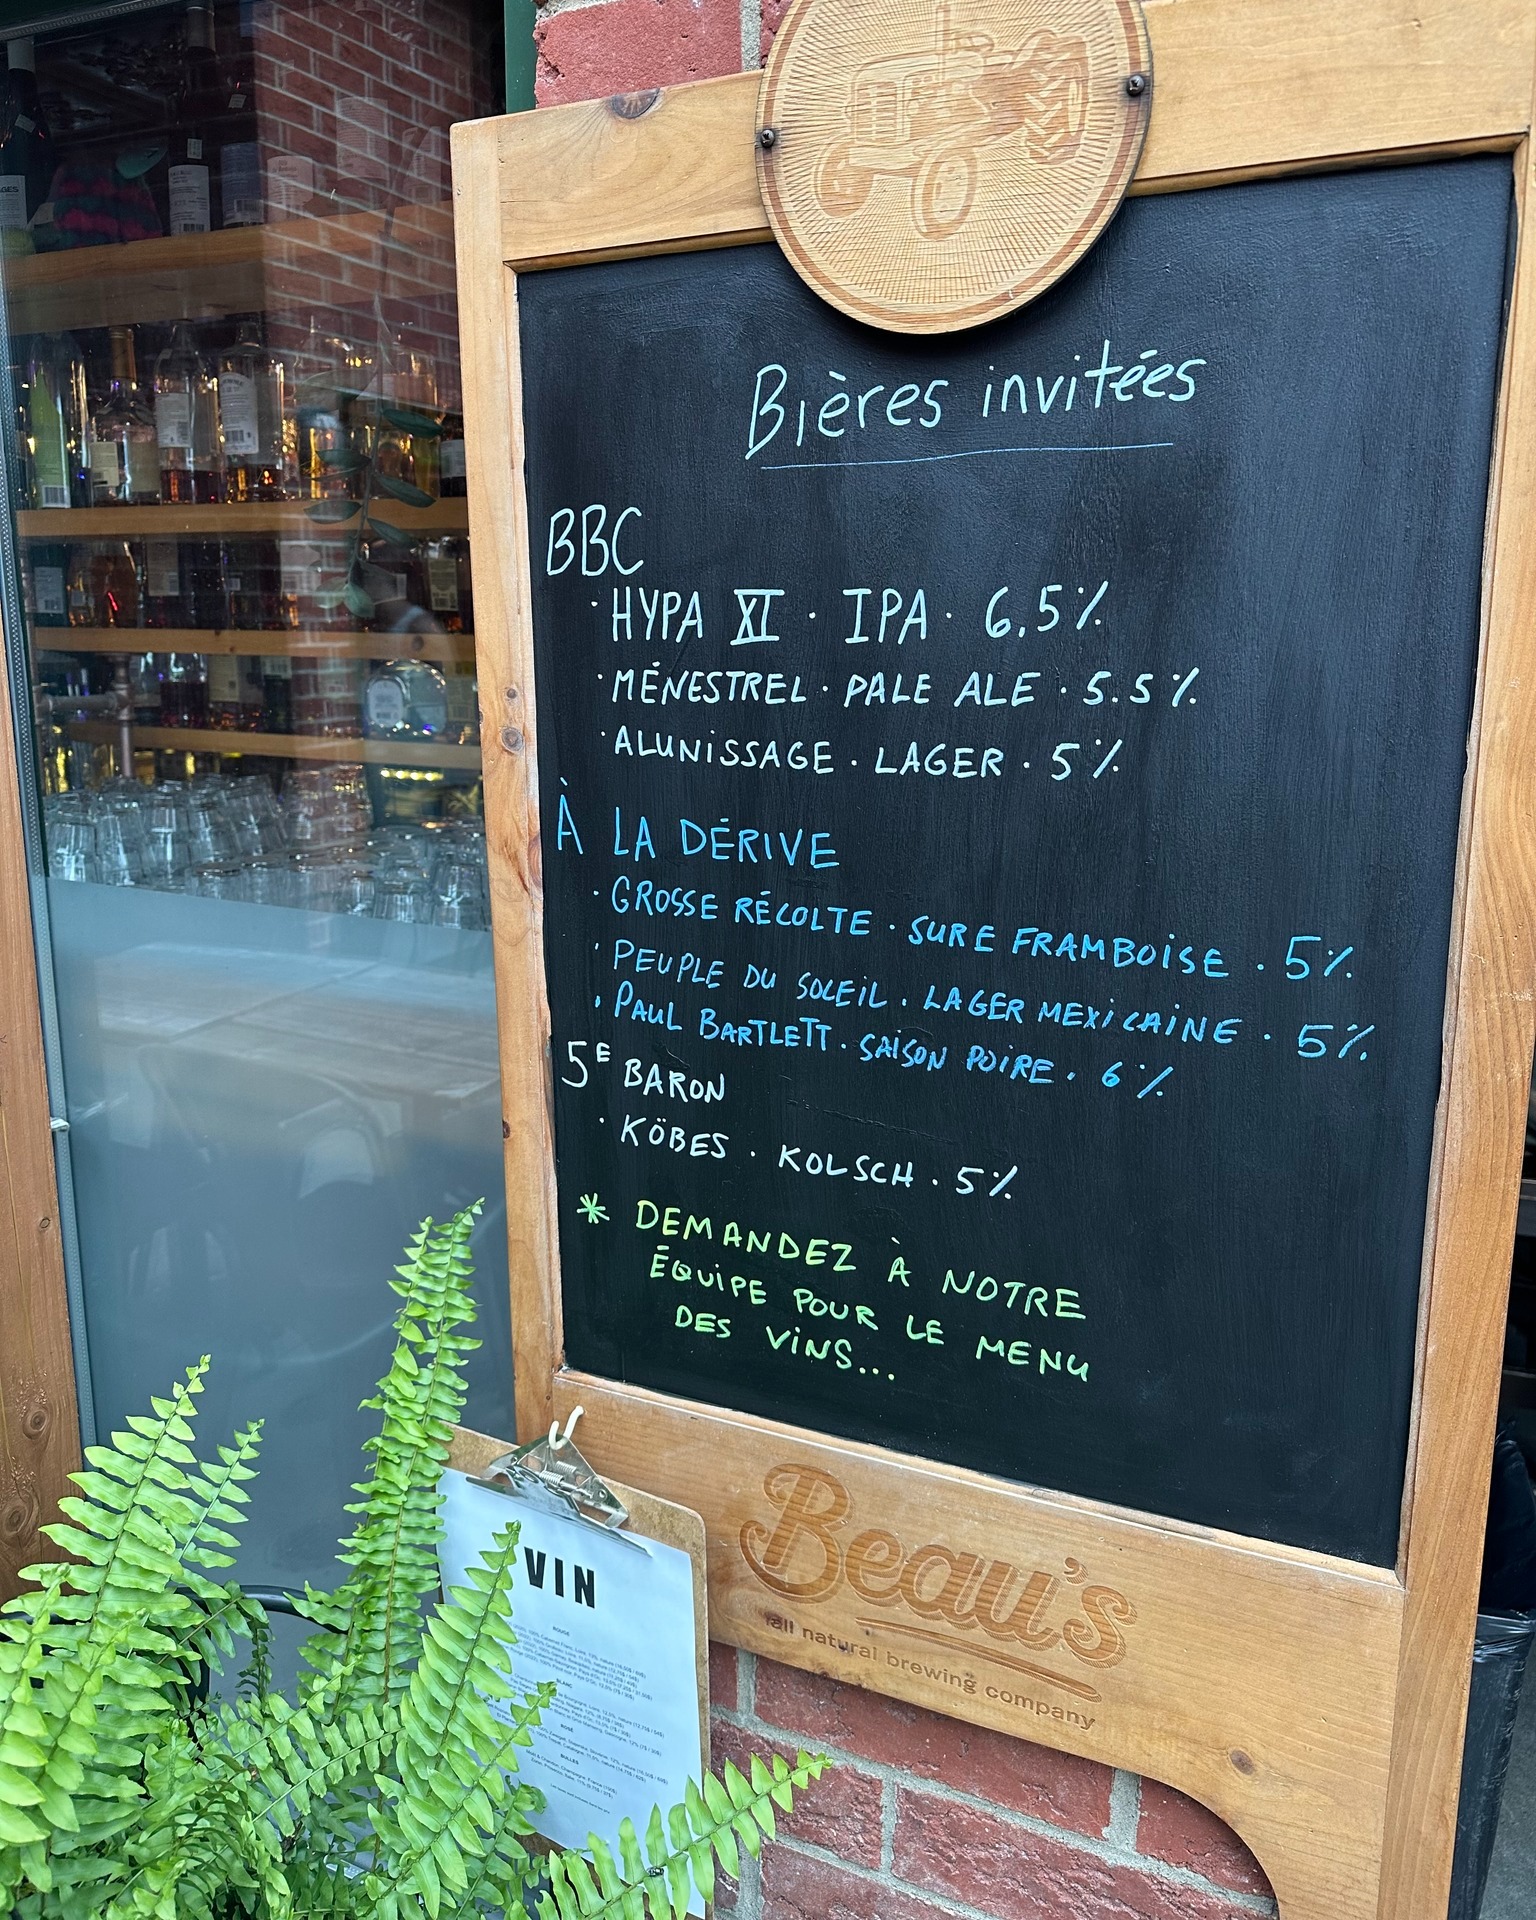 Bières invitées
BBC
· HYPA XI · IPA · 6.5%
· MÉNESTREL · PALE ALE · 5.5%
· ALUNISSAGE · LAGER · 5%
À LA DÉRIVE
· GROSSE RÉCOLTE · SURE FRAMBOISE · 5%
· PEUPLE DU SOLEIL · LAGER MEXICAINE · 5%
· PAUL BARTLETT · SAISON POIRE · 6%
5E BARON
· KÖBES · KOLSCH · 5%
* DEMANDEZ À NOTRE
ÉQUIPE POUR LE MENU
DES VINS...
Beau's
all natural brewing company
VIN
ROUGE
BLANC
ROSÉ
BULLES